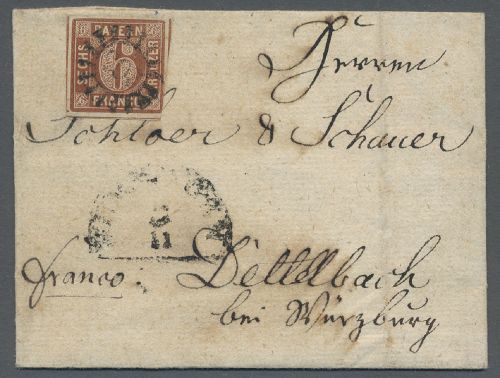 BAYERN
SECHS
6
KREUZER
FRANCO
Herren
Schloer & Schauer
11
franco: Dettelbach
bei Würzburg